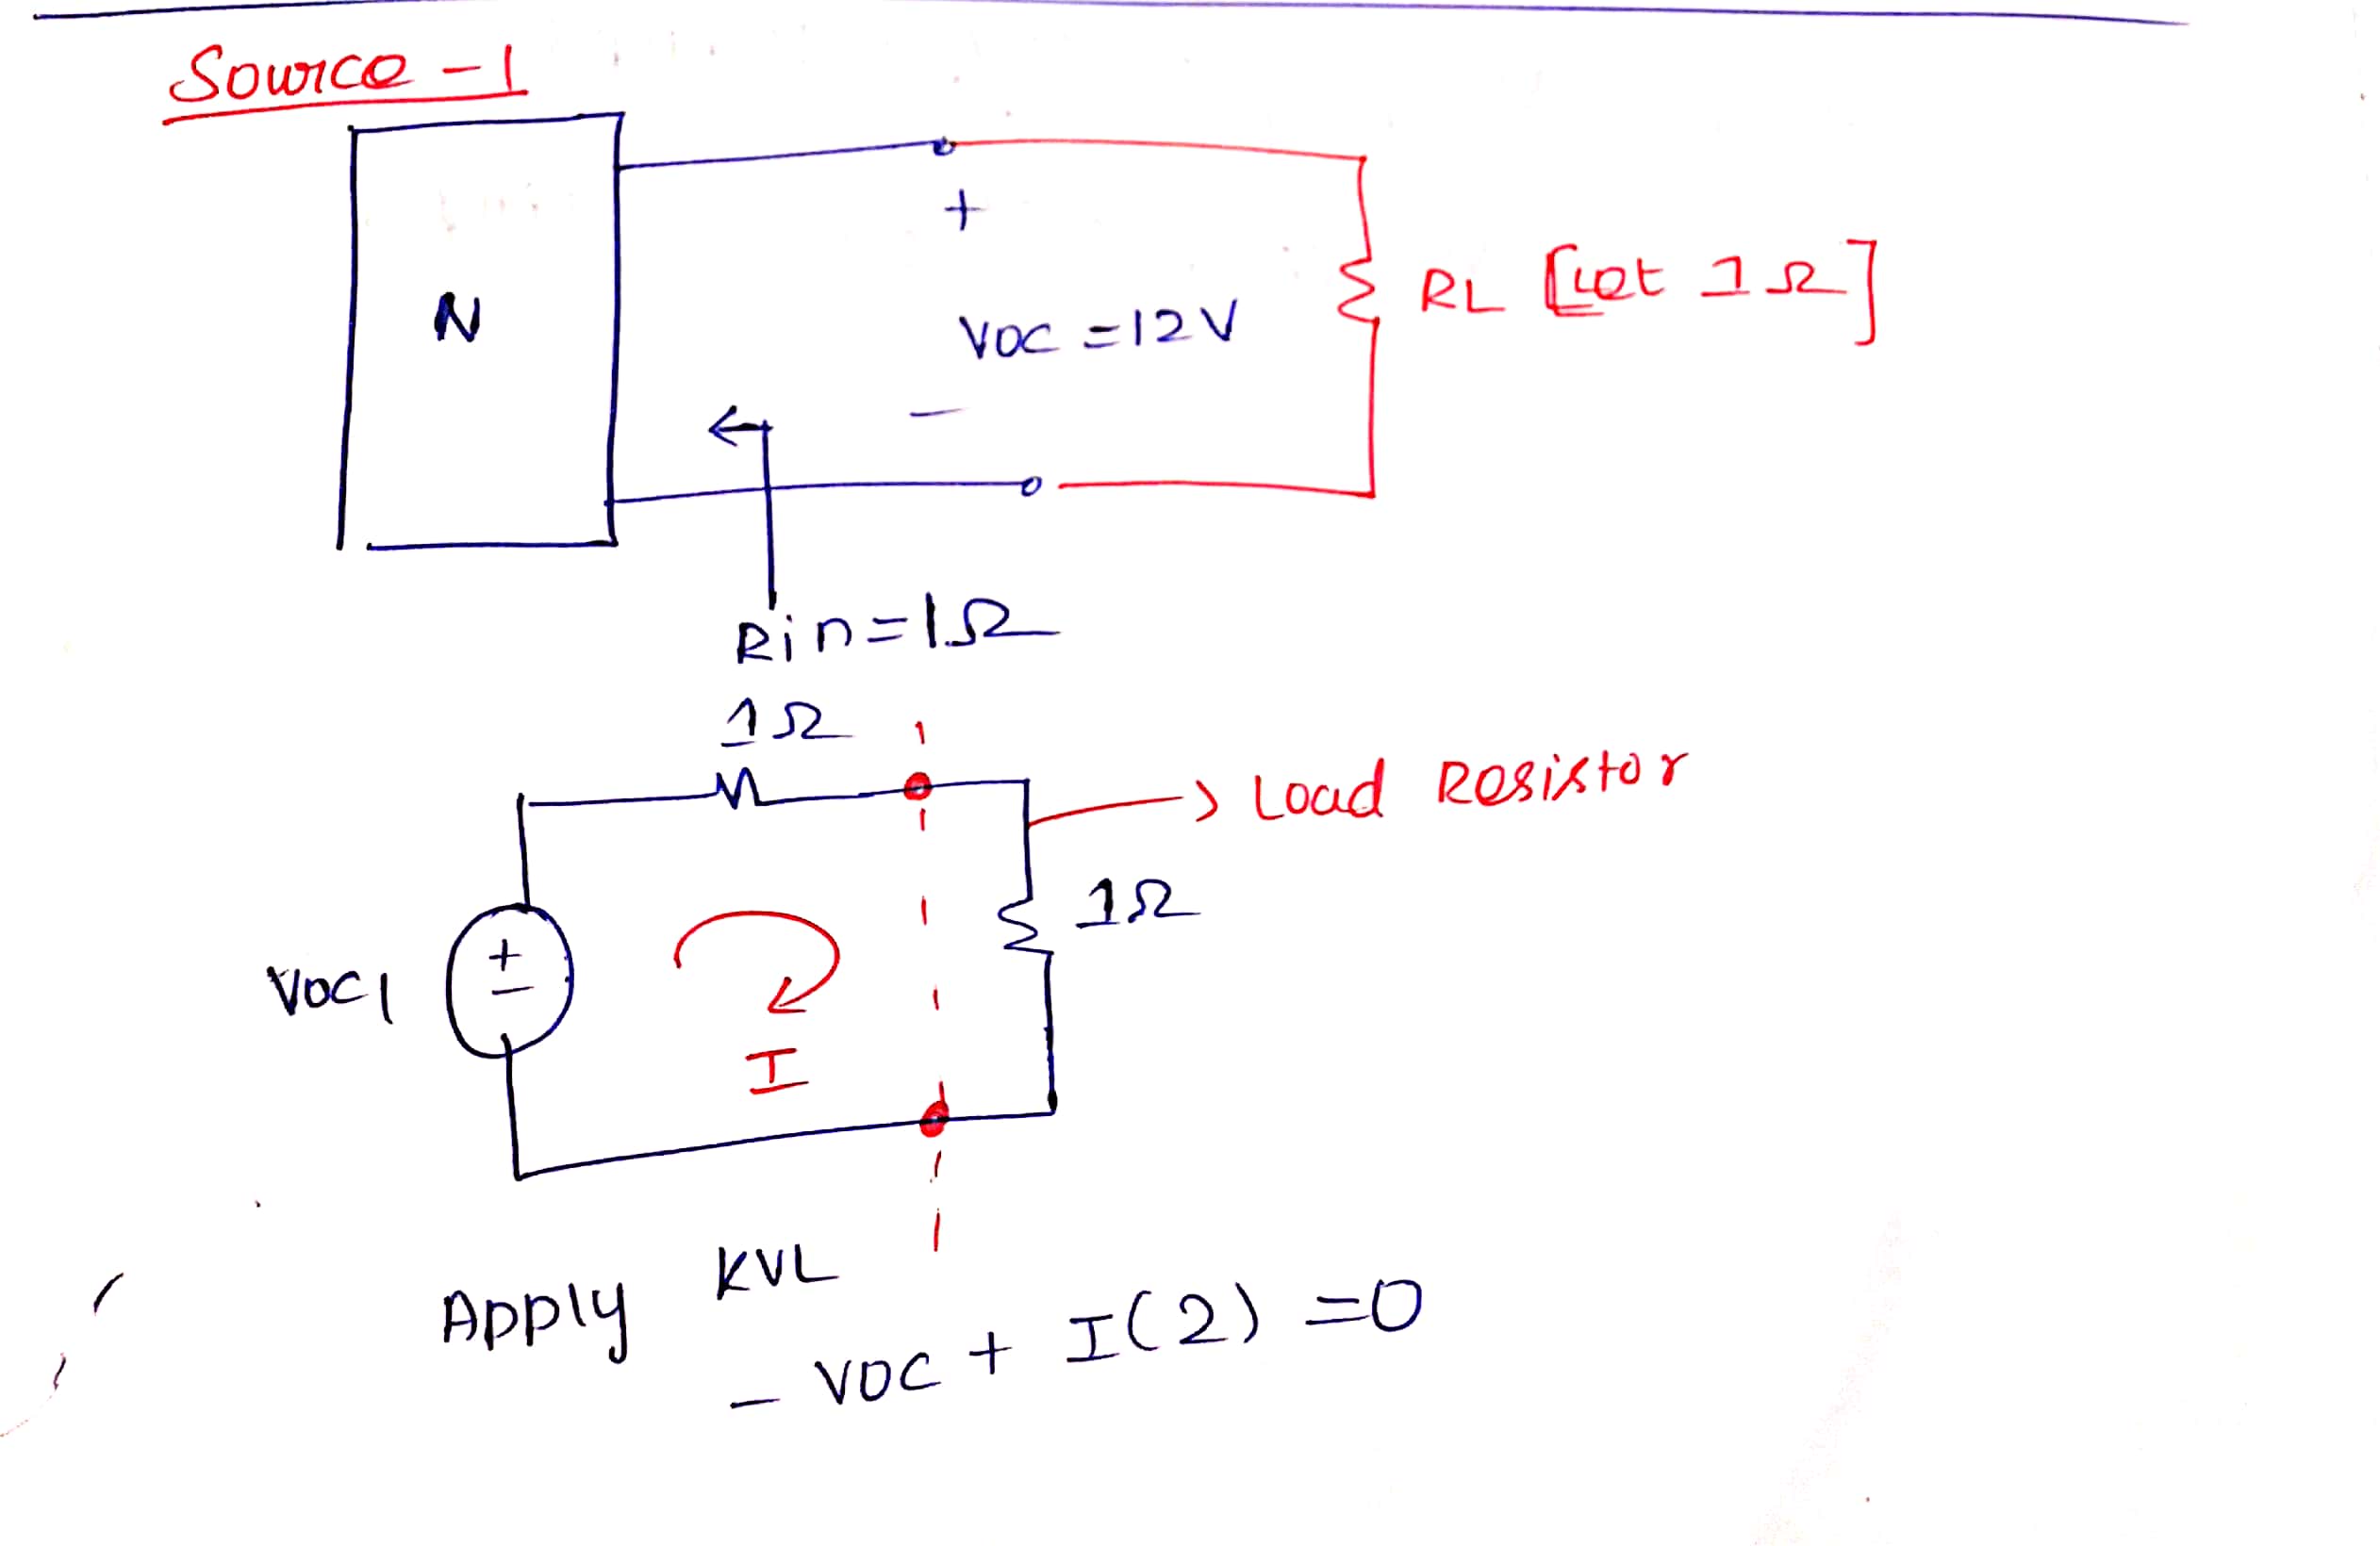 Source - 1
N
+
VOC = 12V
-
RL [Let 1Ω]
Rin = 1Ω
1Ω
Load Resistor
1Ω
VOC1
+
-
I
Apply KVL
- VOC + I(2) = 0